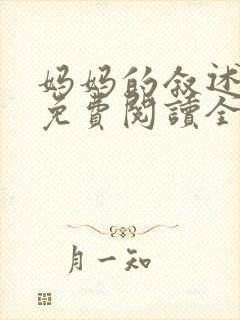 妈妈的叙述
免費閱讀全
月一知